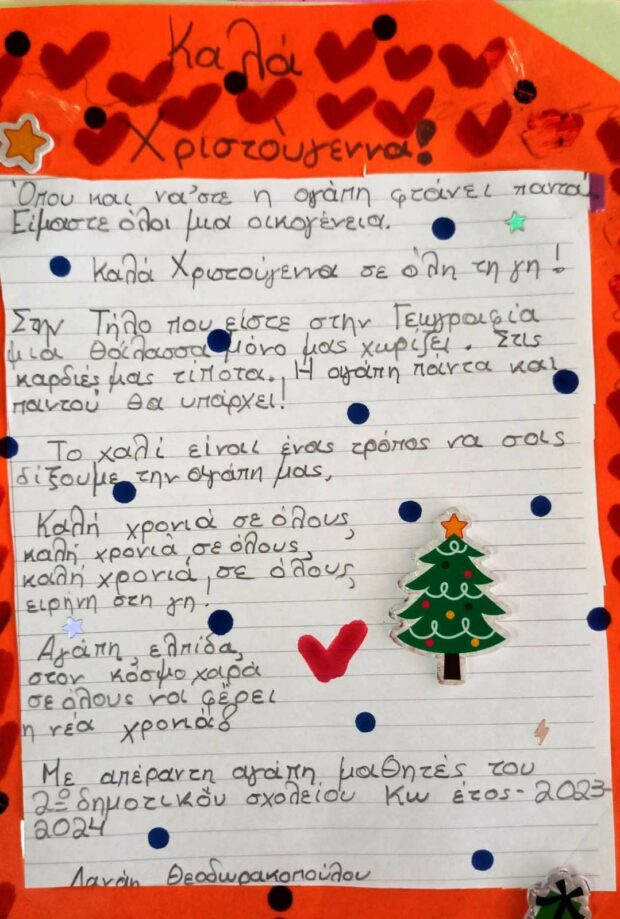 Καλά
Χριστούγεννα!
Όπου και να'στε η αγάπη φτάνει παντά.
Είμαστε όλοι μια οικογένεια.
Καλά Χριστούγεννα σε όλη τη γη!
Στην Τήλο που είστε στην Γεωγραφία
μια θάλασσα μόνο μας χωρίζει. Στις
καρδιές μας τίποτα. Η αγάπη παντα και
παντού θα υπάρχει!
Το χαλί είναι ένας τρόπος να σας
δίξουμε την αγάπη μας,
Καλή χρονιά σε όλους,
καλή χρονιά, σε όλους,
καλή χρονιά, σε όλους,
ειρήνη στη γη.
Αγάπη, ελπίδα,
στον κόσμο χαρά
σε όλους να φέρει
η νέα χρονιά!
Με απέραντη αγάπη, μαθητές του
2ο δημοτικού σχολείου Κω έτος-2023-
2024
Δανάη Θεοδωρακοπούλου